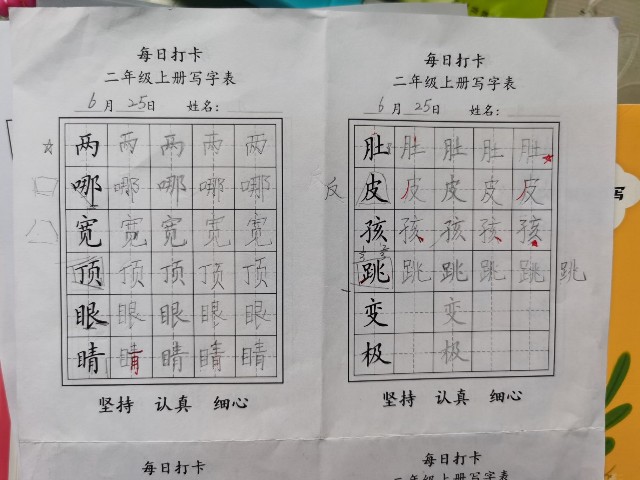 每日打卡
二年级上册写字表
6月25日 姓名:
两 两 两 两 两
哪 哪 哪 哪 哪
宽 宽 宽 宽 宽
顶 顶 顶 顶 顶
眼 眼 眼 眼 眼
睛 睛 睛 睛 睛
坚持 认真 细心
每日打卡
每日打卡
二年级上册写字表
6月25日 姓名:
肚 肚 肚 肚 肚
反 皮 皮 皮 皮 皮
孩 孩 孩 孩 孩
跳 跳 跳 跳 跳 跳
变 变
极 极
坚持 认真 细心
每日打卡
二年级上册写字表
写